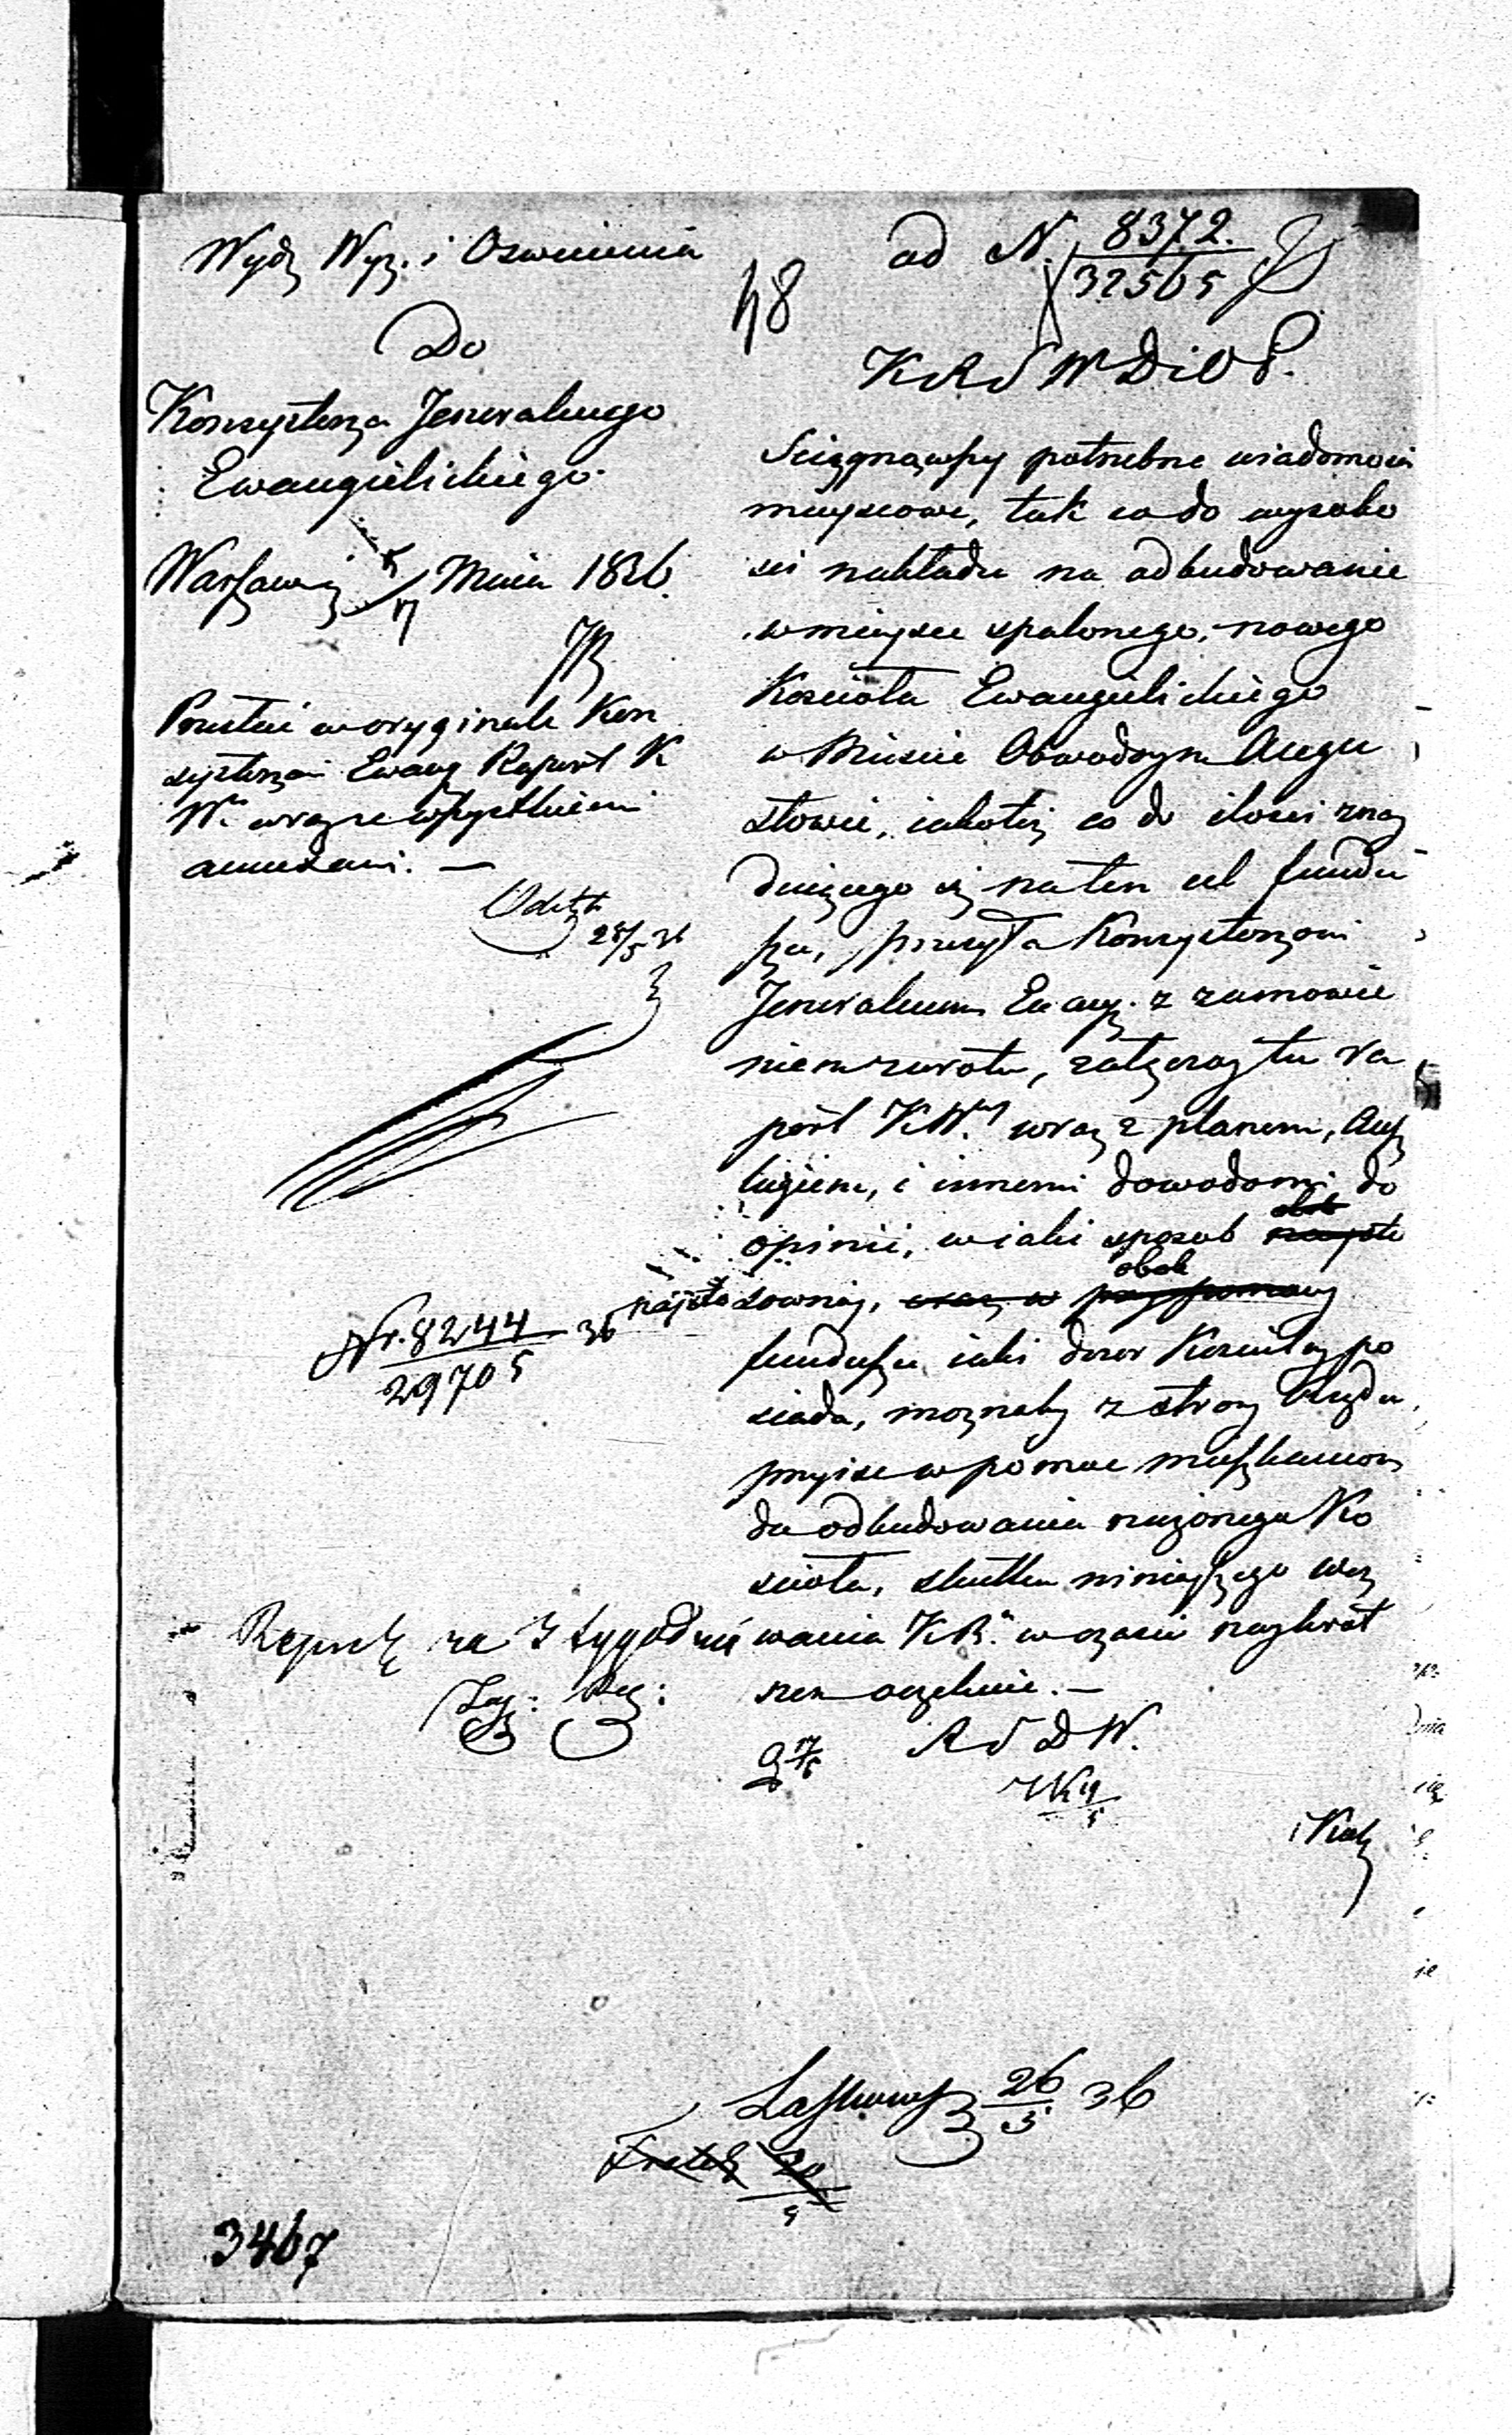 Wydz Wyz. i Oswiecenia
Do
Konsystorza Jeneralnego
Ewangielickiego
Warszawa 5/17 Maia 1836.
Przesłać w oryginale Kon
systorzowi Ewang Raport K
Wa wraz ze wszystkiemi
annexami. —
28/5 36
Nr. 8244/29705 36
ad N. 8372./32565
48
K R S W D i O P.
Sciągnąwszy potrzebne wiadomosci
mieyscowe, tak co do wysoko
sci nakładu na odbudowanie
w mieysce spalonego, nowego
Koscioła Ewangielickiego
w Miescie Obwodzym Augu
stowie, iakoteż co do ilosci znay
duiącego się na ten cel fundu
szu, przesyła Konsystorzowi
Jeneralnemu Ewang. z zamowie
niem zwrotu, załączony tu ra
port KWey wraz z planem, Ansz
lagiem, i innemi dowodami do
opinii, w iaki sposob
najsto sowniej, obok
funduszu iaki dozor Koscielny po
siada, moznaby z strony Rządu
przyisc w pomoc mieszkancom
do odbudowania rzeczonego Ko
scioła, skutku ninieyszego wez
wania KR. w czasie naykrót
szem oczekuie. —
Reprod za 3 tygodnie
R S D W.
26/5 36
3467